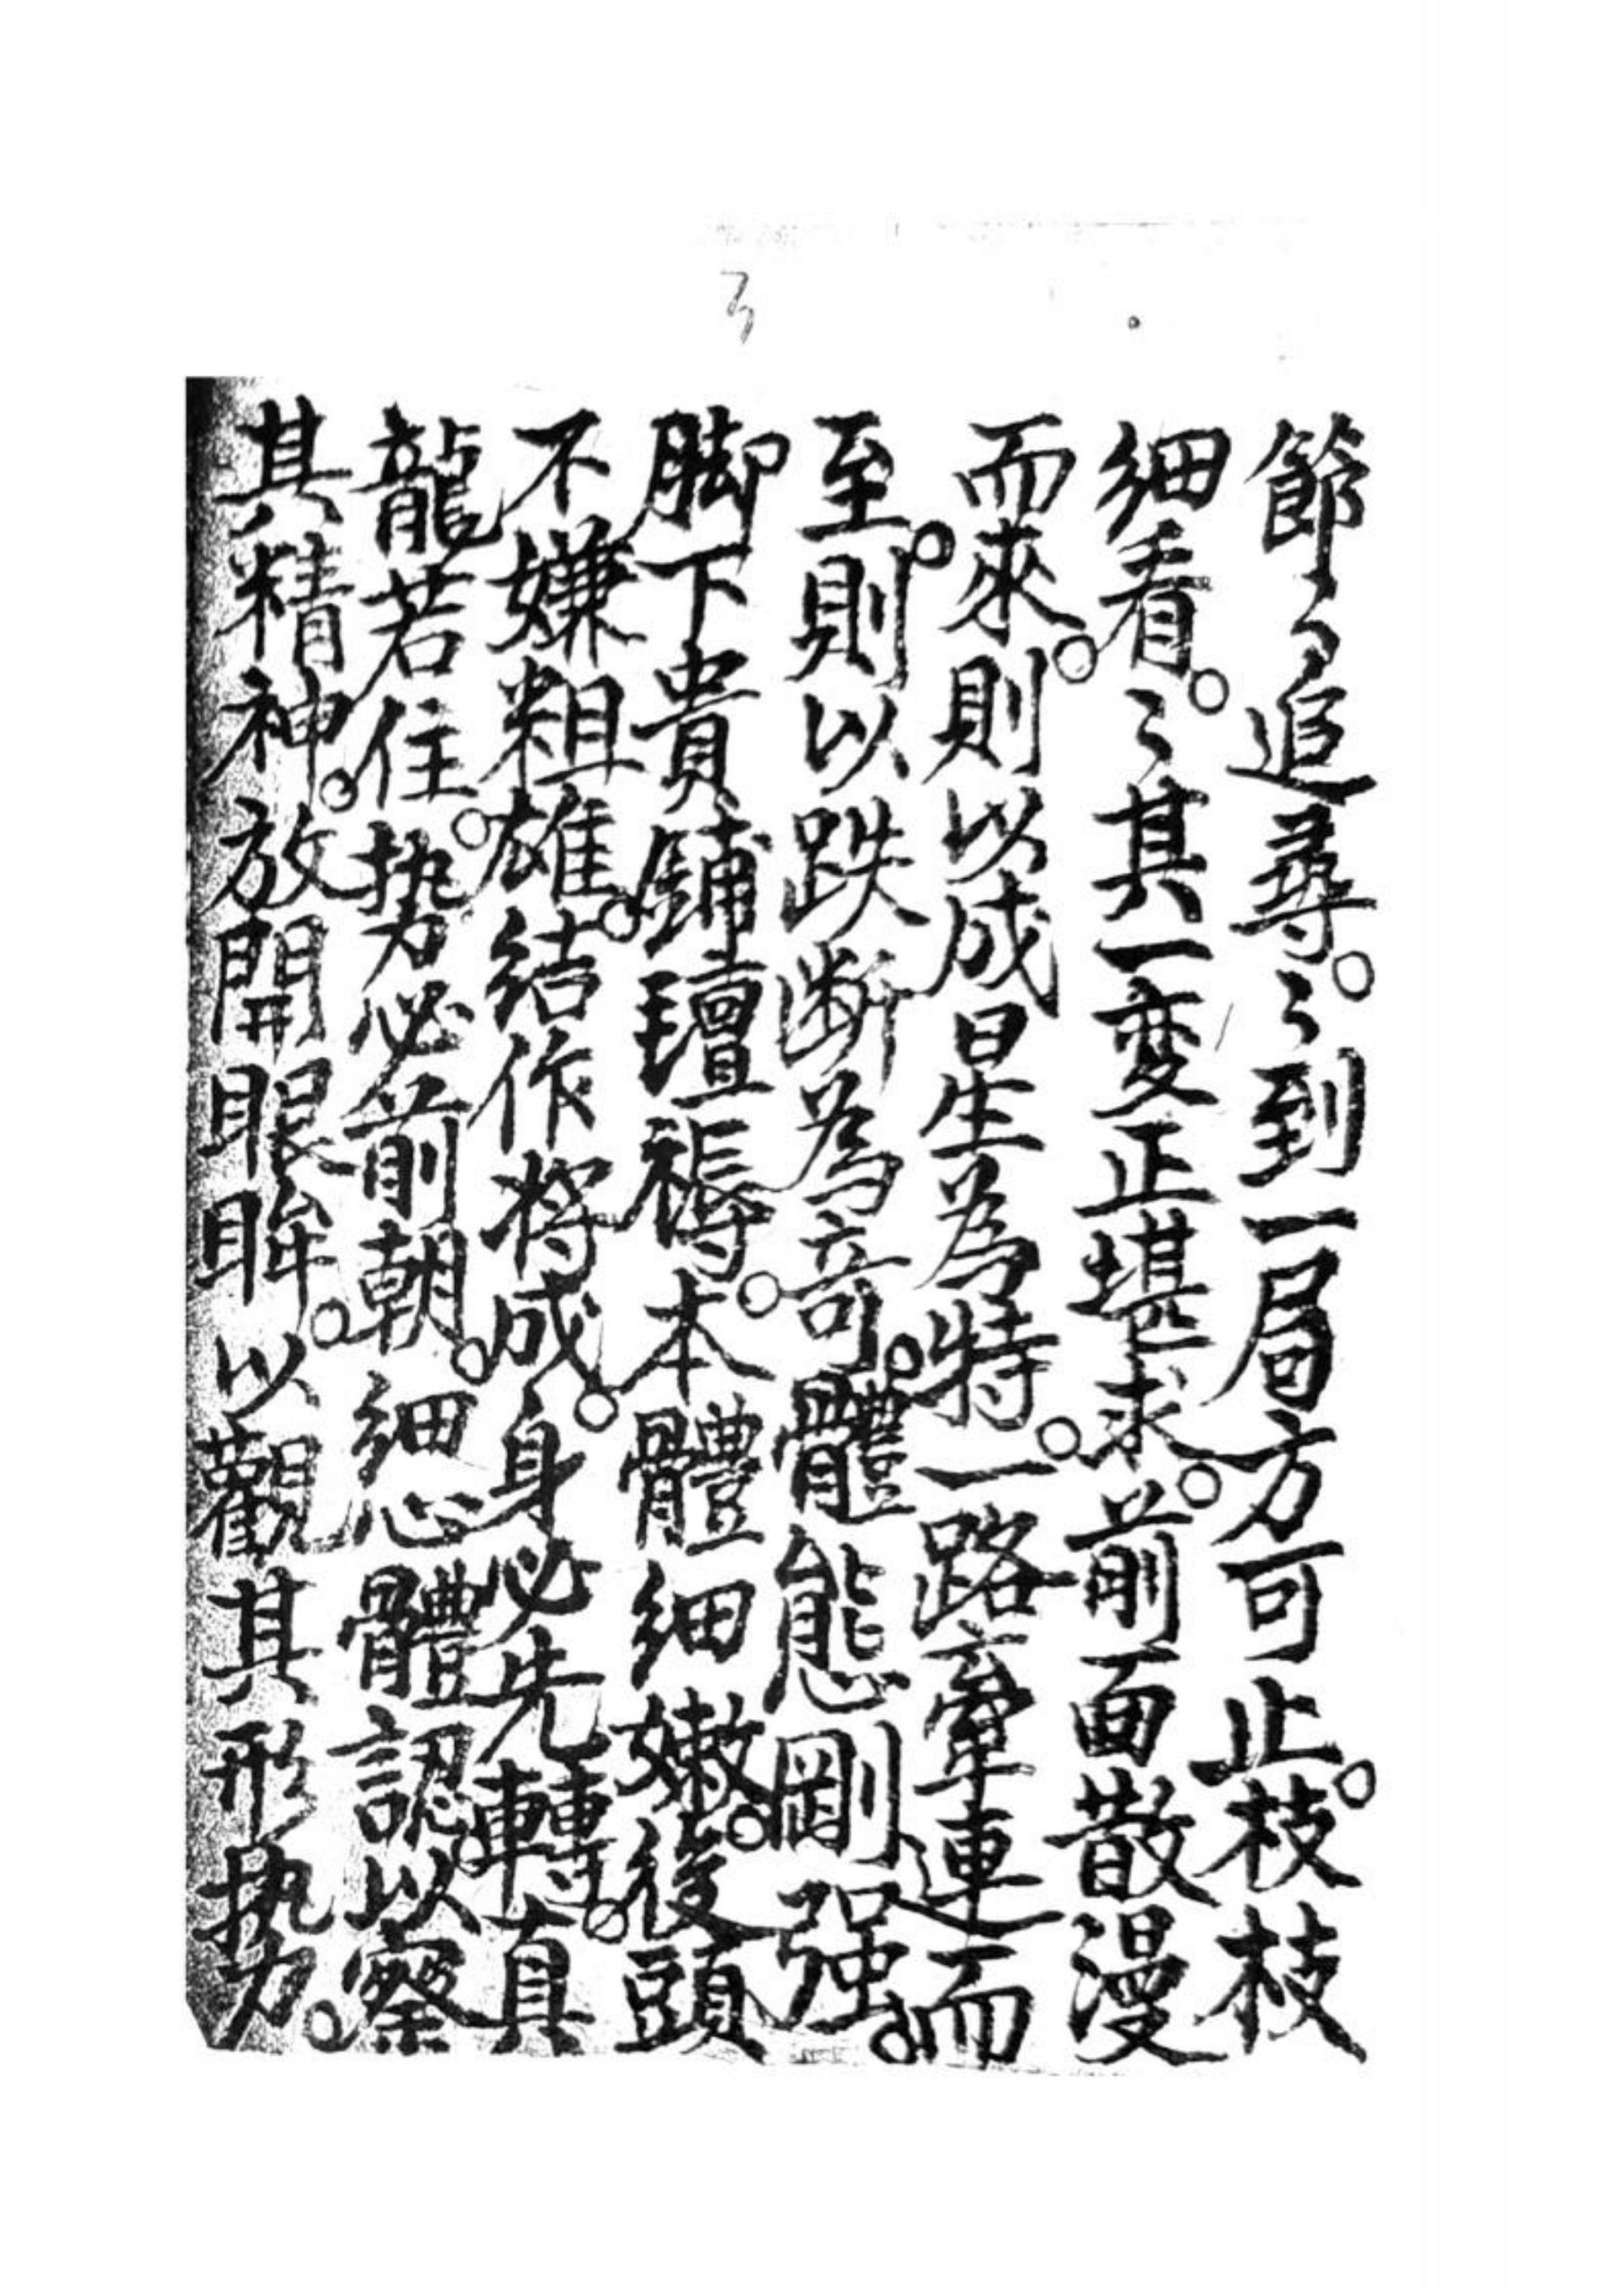 節々追尋。〻到一局方可止。枝枝
細看。〻其一変正堪求。前面散漫
而來。則以成星為特。一路牽連而
至。則以跌断為竒。體態剛强。
脚下貴鋪氊褥。本體細嫩。後頭
不嫌粗雄。結作将成。身必先轉。真
龍若住。势必前朝。細心體認。以察
其精神。放開眼眸。以觀其形势。